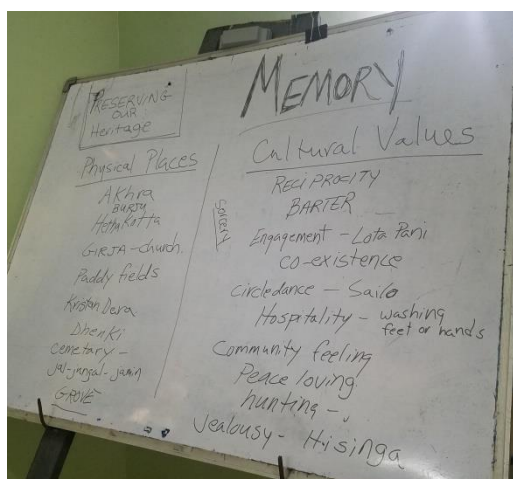 PRESERVING
OUR
Heritage
Physical Places
Akhra
BURJU
Hathikatta
GIRJA - church
Paddy fields
Kristan Dera
Dhenki
cemetary -
jal-jangal-jamin
GROVE
MEMORY
Cultural Values
RECIPROCITY
BARTER
Sorcery
Engagement - Lota Pani
co-existence
circledance - Sailo
Hospitality - washing
feet or hands
Community feeling
Peace loving
hunting -
Jealousy - Hisinga